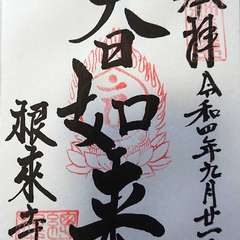 奉拝 令和四年九月廿一
大日如来
根来寺